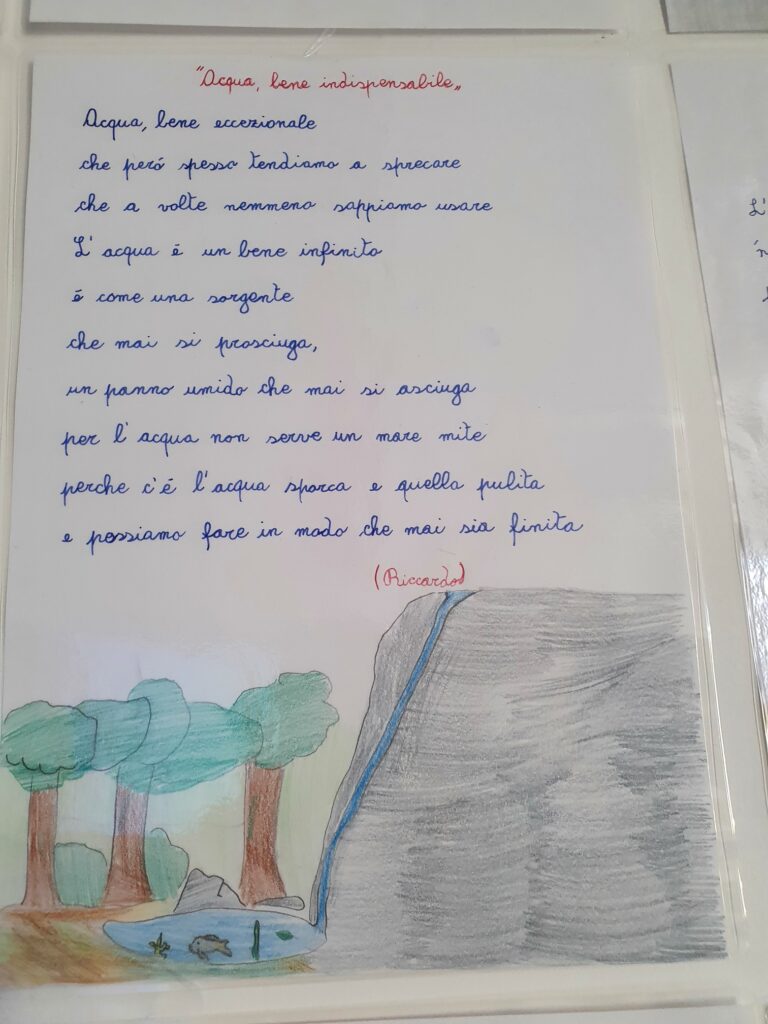 "Acqua, bene indispensabile"
Acqua, bene eccezionale
che però spesso tendiamo a sprecare
che a volte nemmeno sappiamo usare
L'acqua é un bene infinito
é come una sorgente
che mai si prosciuga,
un panno umido che mai si asciuga
per l'acqua non serve un mare mite
perche c'é l'acqua sporca e quella pulita
e possiamo fare in modo che mai sia finita
(Riccardo)
L'